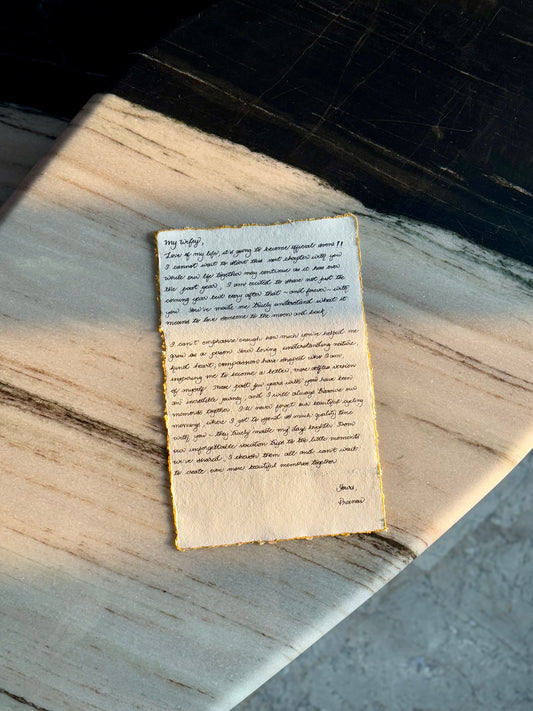 My Wifey,
Love of my life, it's going to become official soon!!
I cannot wait to start this next chapter with you
while our life together may continue as it has over
the past year, I am excited to share not just the
coming year but every after that - and forever - with
you. You've made me truly understand what it
means to love someone to the moon and back.
I can't emphasise enough how much you've helped me
grow as a person. Your loving, understanding nature,
kind heart, compassion have shaped who I am,
inspiring me to become a better, more selfless version
of myself. These past few years with you have been
an incredible journey, and I will always treasure our
memories together. I'll never forget our beautiful cycling
mornings, where I got to spend so much quality time
with you - they truly made my days brighter. From
our unforgettable vacation trips to the little moments
we've shared, I cherish them all and can't wait
to create even more beautiful memories together.
Yours,